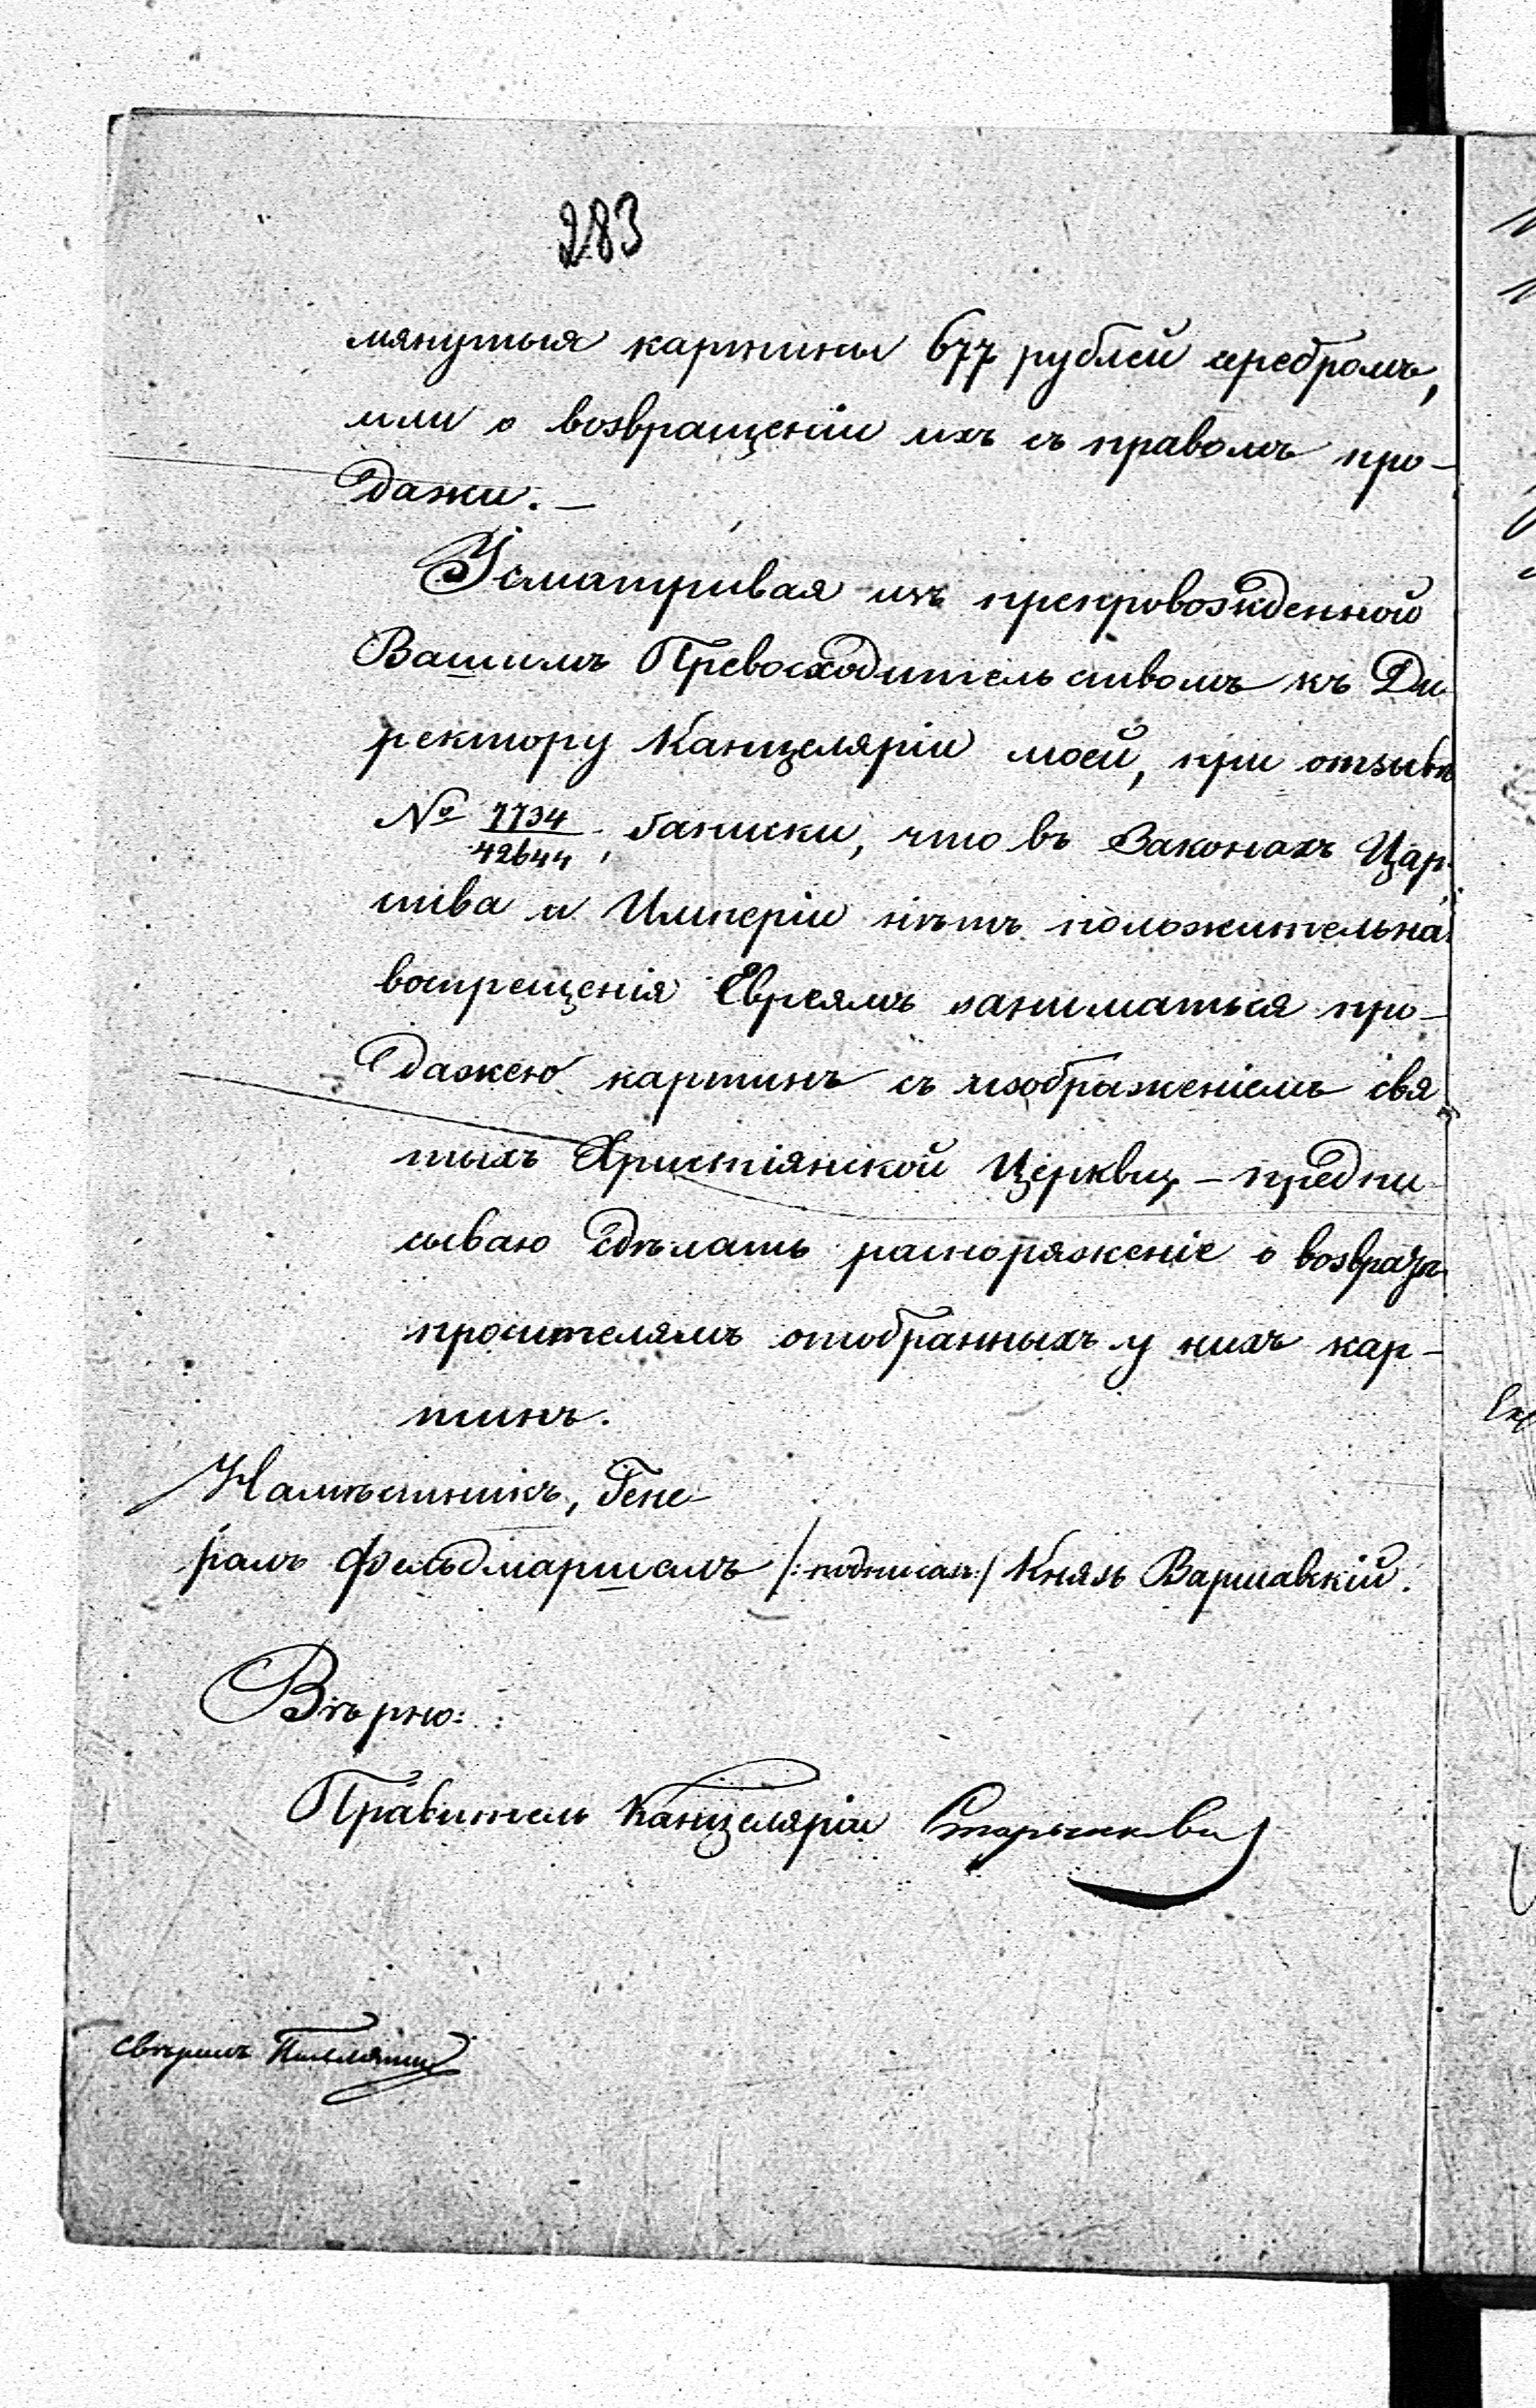 283
мянутыя картины 677 рублей серебромъ,
или о возвращеніи ихъ съ правомъ про-
дажи. —
Усматривая изъ препровожденной
Вашимъ Превосходительствомъ къ Ди
ректору Канцеляріи моей, при отзывѣ
№ 7734/42644, записки, что въ Законахъ Цар-
ства и Имперіи нѣтъ положительна
воспрещенія Евреямъ заниматься про-
дажею картинъ съ изображеніемъ свя
тыхъ Христіянской Церкви, — предпи
сываю сдѣлать распоряженіе о возвратѣ
просителямъ отобранныхъ у нихъ кар-
тинъ.
Намѣстникъ, Гене-
ралъ Фельдмаршалъ /:подписалъ:/ Князь Варшавскій.
Вѣрно:
Правитель Канцеляріи
свѣрилъ